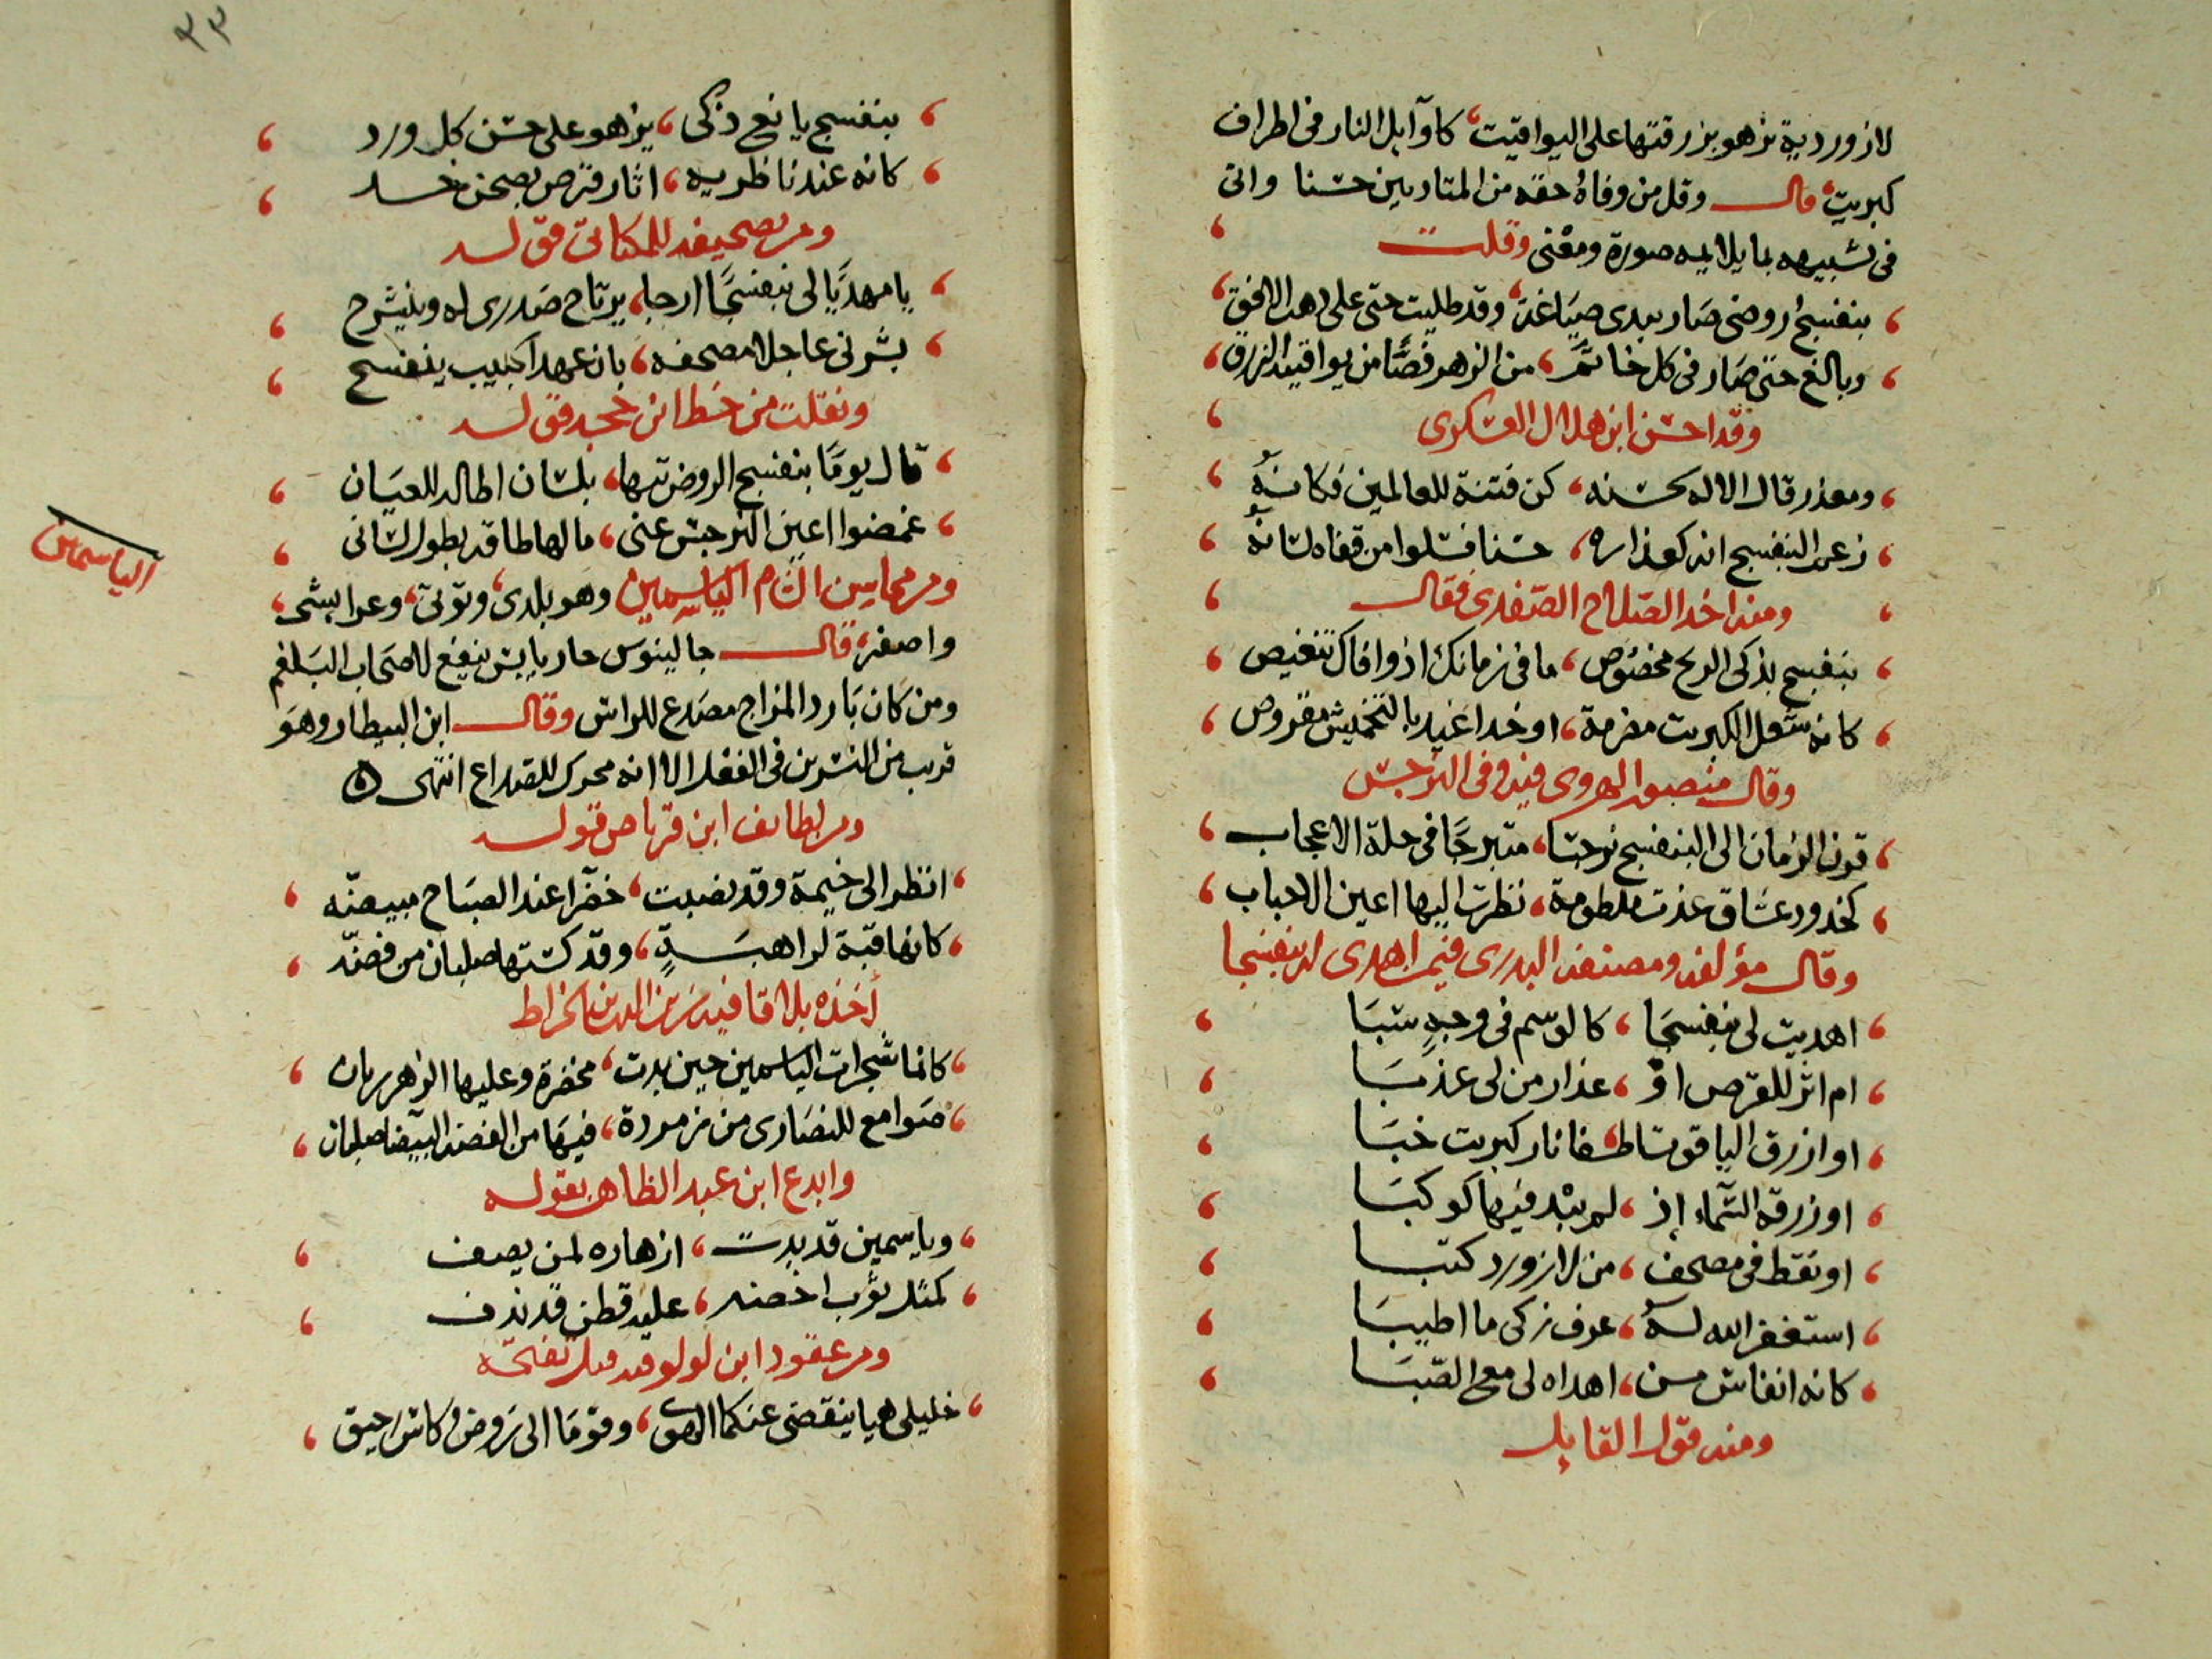 لازوردية تزهو بزرقتها على اليواقيت، كاوآيل النار فى اطراف
كبريت، قال وقل من وفاه حقه من المتادبين حسنا واتى
فى تشبيهه بما يلايمه صورة ومعنى وقلت
بنفسج روضى صار يبدى صياغة، وقد طليت حتى على هذا الافق
وبالغ حتى صار فى كل خاتم، من الزهر فصا من يواقيته الزرق
وقد احسن ابن هلال العسكرى
ومعذر قال الاله لحسنه، كن فتنة للعالمين فكانه
زعم البنفسج انه كعذاره، حسنا فسلوا من قفاه لسانه
ومنه اخذ الصلاح الصفدى فقال
بنفسج بذكى الريح مخصوص، ما فى زمانك اذ وافاك تنغيص
كانه شعل الكبريت مضرمة، او خد اغيد بالتخميش مقروص
وقال منصور الهروى فيه وفى النرجس
قرن الزمان الى البنفسج نرجسا، متبرجا فى حلة الاعجاب
كخدود عشاق غدت ملطومة، نظرت اليها اعين الاحباب
وقال مؤلفه ومصنفه البدرى فيمن اهدى له بنفسجا
اهديت لى بنفسجا، كالوسم فى وجه سبا
ام اثر للقرص او، عذار من لى عذبا
او ازرق الياقوت اطفا نار كبريت خبا
او زرقة السماء إذ، لم يبد فيها كوكبا
او نقط فى مصحف، من لازورد كتبا
استغفر الله له، عرف زكى ما اطيبا
كانه انفاس من، اهداه لى مع الصبا
ومنه قول القايل
٣٣
بنفسج يانع ذكى، يزهو على حسن كل ورد
كانه عند ناظريه، اثار قرص بصحن خد
ومن تصحيفه للمكاتى قوله
يا مهديا لى بنفسجا ارجا، يرتاح صدرى له وينشرح
بشرنى عاجلا مصحفه، بان عهد الحبيب ينفسح
ونقلت من خط ابن حجه قوله
قال يوما بنفسج الروض تيها، بلسان اطاله للعيان
غمضوا اعين النرجس عنى، ما لها طاقة بطول لسانى
ومن محاسن الشام الياسمين وهو بلدى، وتونى، وعرايشى،
الياسمين
واصفر، قال جالينوس حار يابس ينفع لاصحاب البلغم
ومن كان بارد المزاج مصدع للراس وقال ابن البيطار وهو
قريب من النسرين فى الفعل الا انه محرك للصداع انتهى ه
ومن لطايف ابن قرناص قوله
انظر الى خيمة وقد نصبت، خضرا عند الصباح مبيضه
كانها قبة لراهبة، وقد كستها صلبان من فضه
أخذه بلاقافية زين الدين الخراط
كانما شجرات الياسمين حين بدت، مخضرة وعليها الزهر ريان
صوامع للنصارى من زمردة، فيها من الفضة البيضا صلبان
وابدع ابن عبد الظاهر بقوله
وياسمين قد بدت، ازهاره لمن يصف
كمثل ثوب اخضر، عليه قطن قد ندف
ومن عقود ابن لولو فيه قبل تفتحه
خليلى هيا ينقضى عنكما الهوى، وقوما الى روض وكاس رحيق